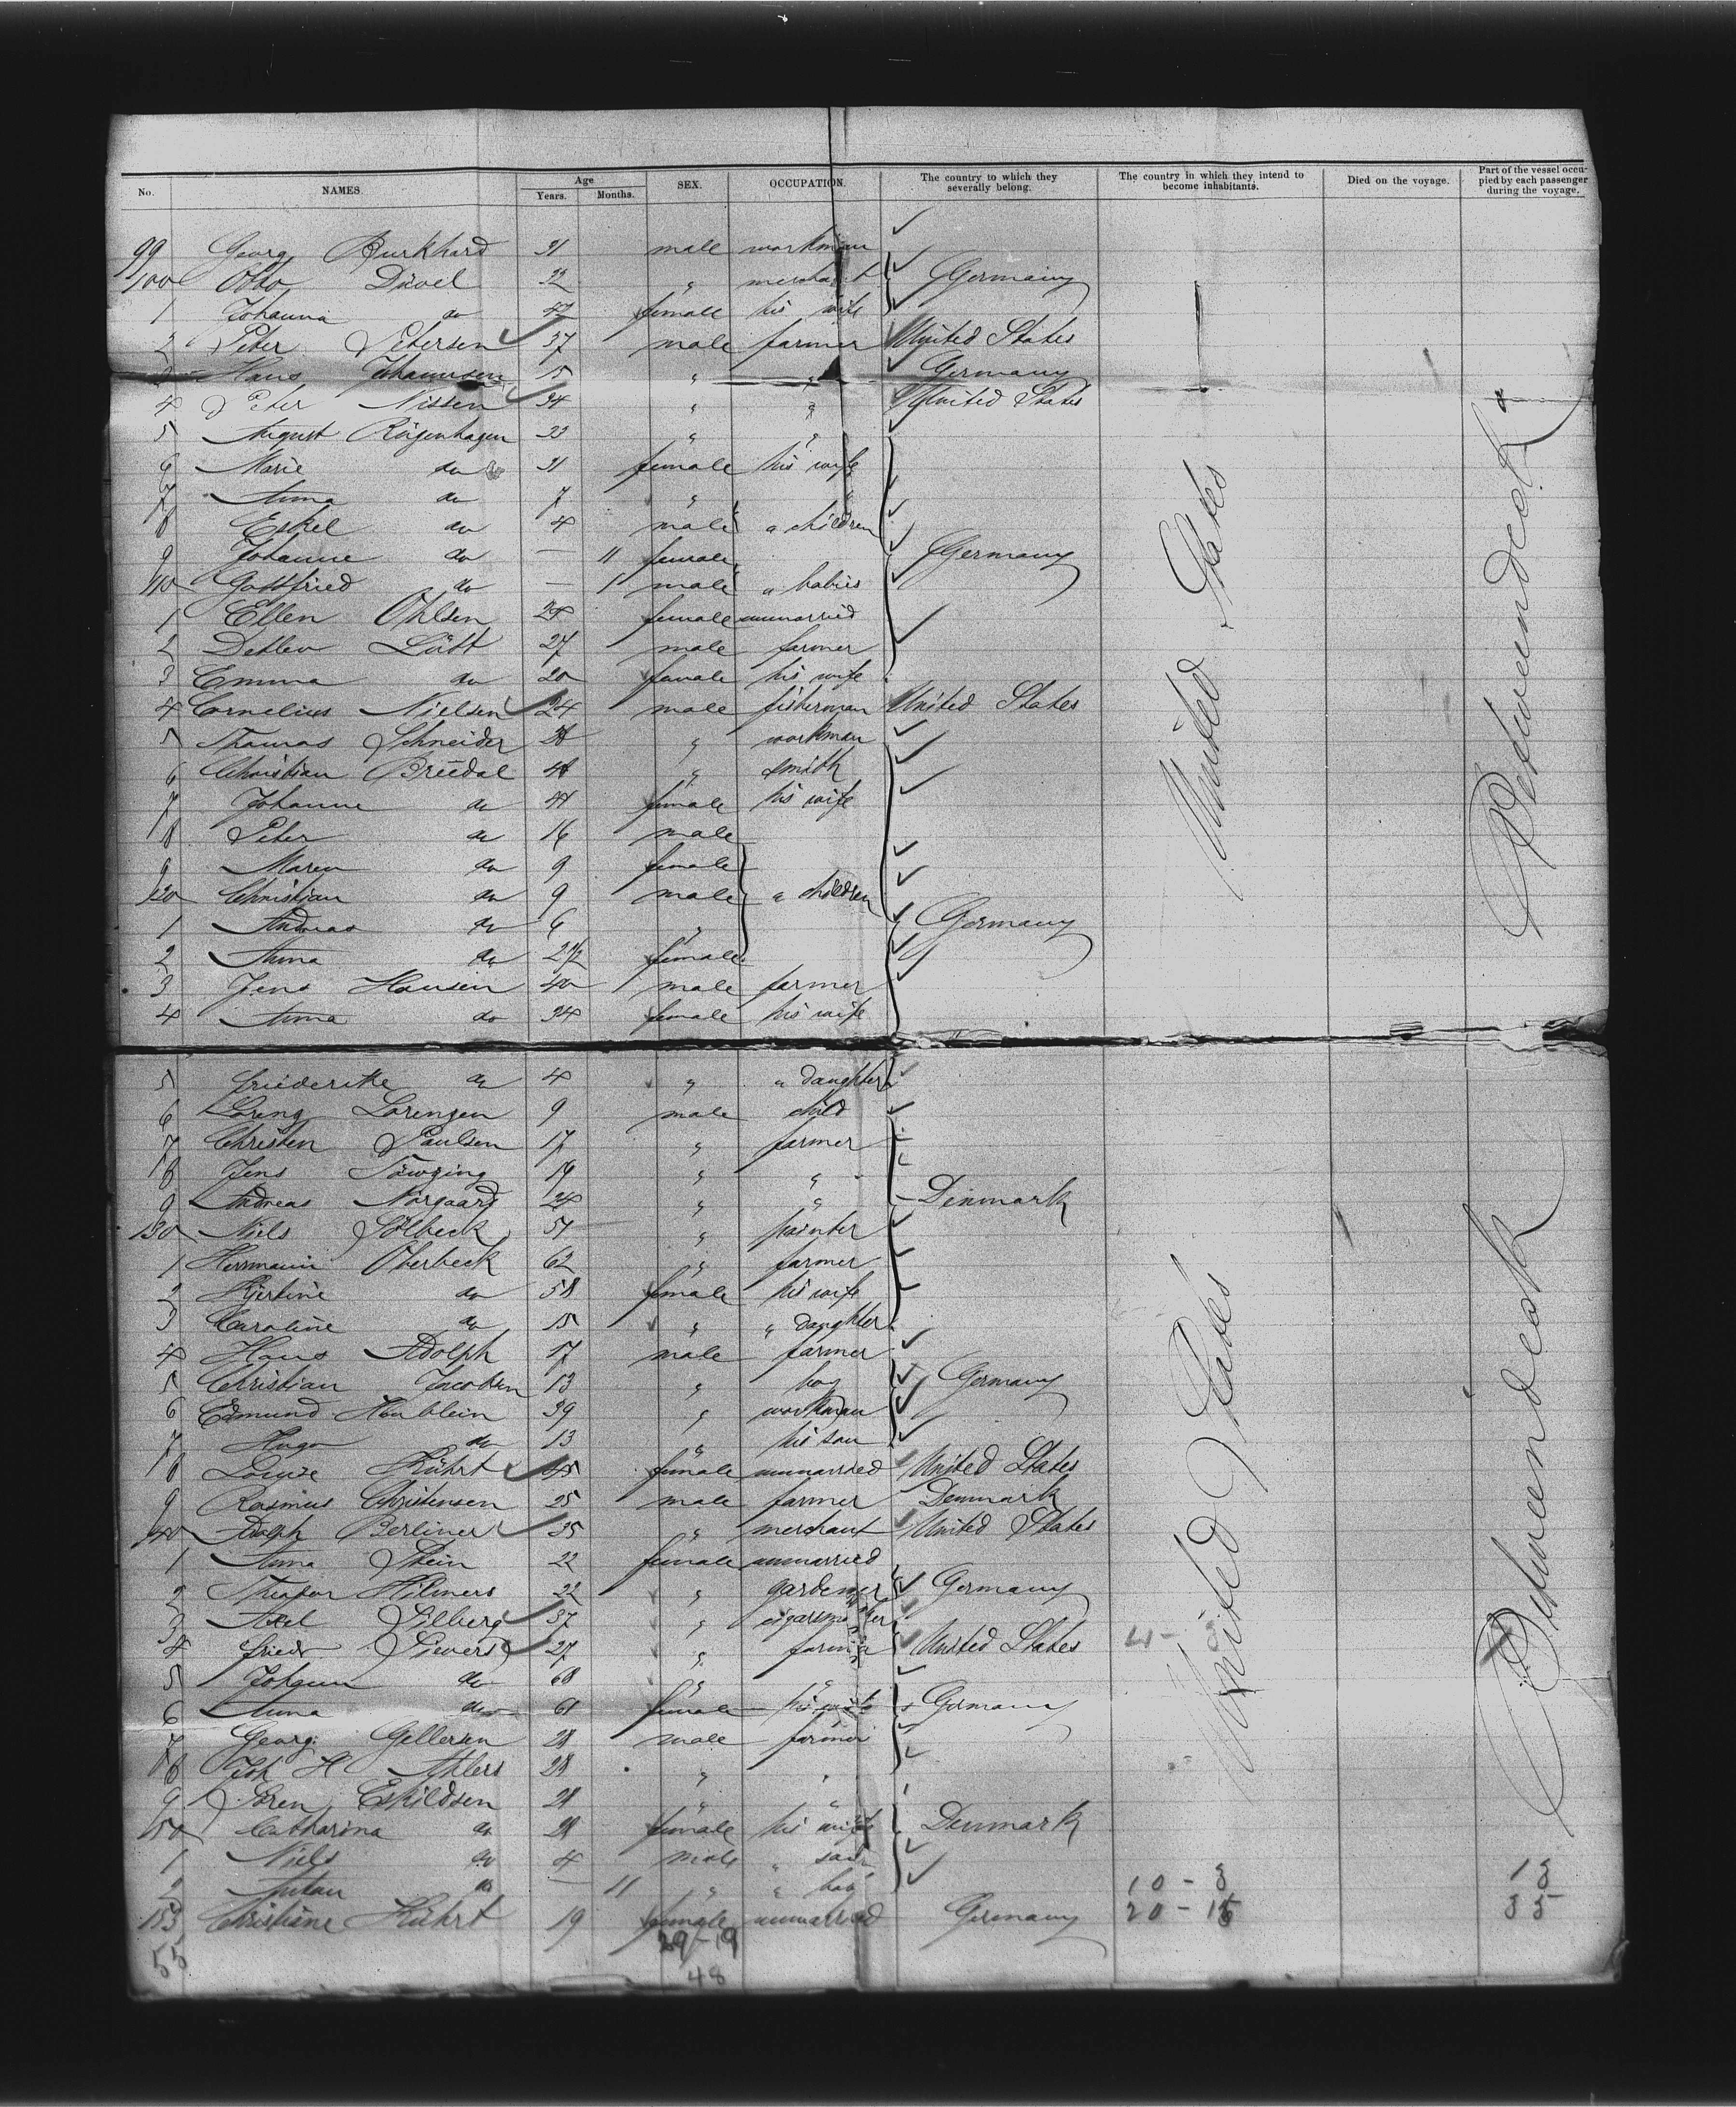 No. NAMES. Age Years. Months. SEX. OCCUPATION. The country to which they severally belong. The country in which they intend to become inhabitants. Died on the voyage. Part of the vessel occupied by each passenger during the voyage.
99 Georg Burkhard 31 male workman
100 Otto Düvel 32 " merchant Germany
1 Johanna do 42 female his wife
2 Peter Petersen 37 male farmer United States
3 Hans Johannsen 15 " " Germany
4 Peter Nissen 34 " " United States
5 August Rögenhagen 33 " "
6 Marie do 31 female his wife
7 Anna do 7 "
8 Eskel do 4 male " children
9 Johanne do — 11 female Germany
110 Gottfried do — 1 male " babies
1 Ellen Ohlsen 24 female unmarried
2 Detlev Lätt 27 male farmer
3 Emma do 20 female his wife
4 Cornelius Nielsen 24 male fisherman United States
5 Thomas Schneider " workman
6 Christian Breedal " smith
7 Johanne do 41 female his wife
18 Peter do 16 male
9 Maren do 9 female
120 Christian do 9 male " children
1 Andreas do 6 " Germany
2 Anna do 2 1/2 female
3 Jens Hansen 40 male farmer
4 Anna do 34 female his wife
5 Friederike do 4 " " daughter
6 Loreng Lorenzen 9 male child
7 Christen Paulsen 17 " farmer
18 Jens 19 " "
9 Andreas Norgaard 24 " " Denmark
130 Niels Sölbeck 51 " painter
1 Herrmann Oberbeck 62 " farmer
2 Kjerstine do 58 female his wife
3 Caroline do 15 " " daughter
4 Hans Adolph 17 male farmer
5 Christian Jacobsen 13 " boy Germany
6 Edmund Hänblein 39 " workman
7 Hugo do 13 " his son
18 Louise Kührt 45 female unmarried United States
9 Rasmus Christensen 25 male farmer Denmark
140 Adolph Berliner 35 " merchant United States
1 Anna Stein 22 female unmarried
2 Theodor Hilmers 22 " gardener Germany
3 Axel Silberg 37 " cigarsmaker
4 Friedr Sievers 27 " farmer United States 4-
5 Johann do 68 " "
6 Anna do 61 female his wife Germany
7 Georg Gellersen 28 male farmer
18 Joh H Ahlers 28 " "
9 Soren Eskildsen 28 " "
150 Catharina do 28 female his wife Denmark
1 Niels do 4 male " son
2 Anton do — 11 " " baby 10 - 8 18
153 Christiane Kührt 19 female unmarried Germany 20 - 15 35
55 29-19
48
United States
United States
Betweendeck
Betweendeck